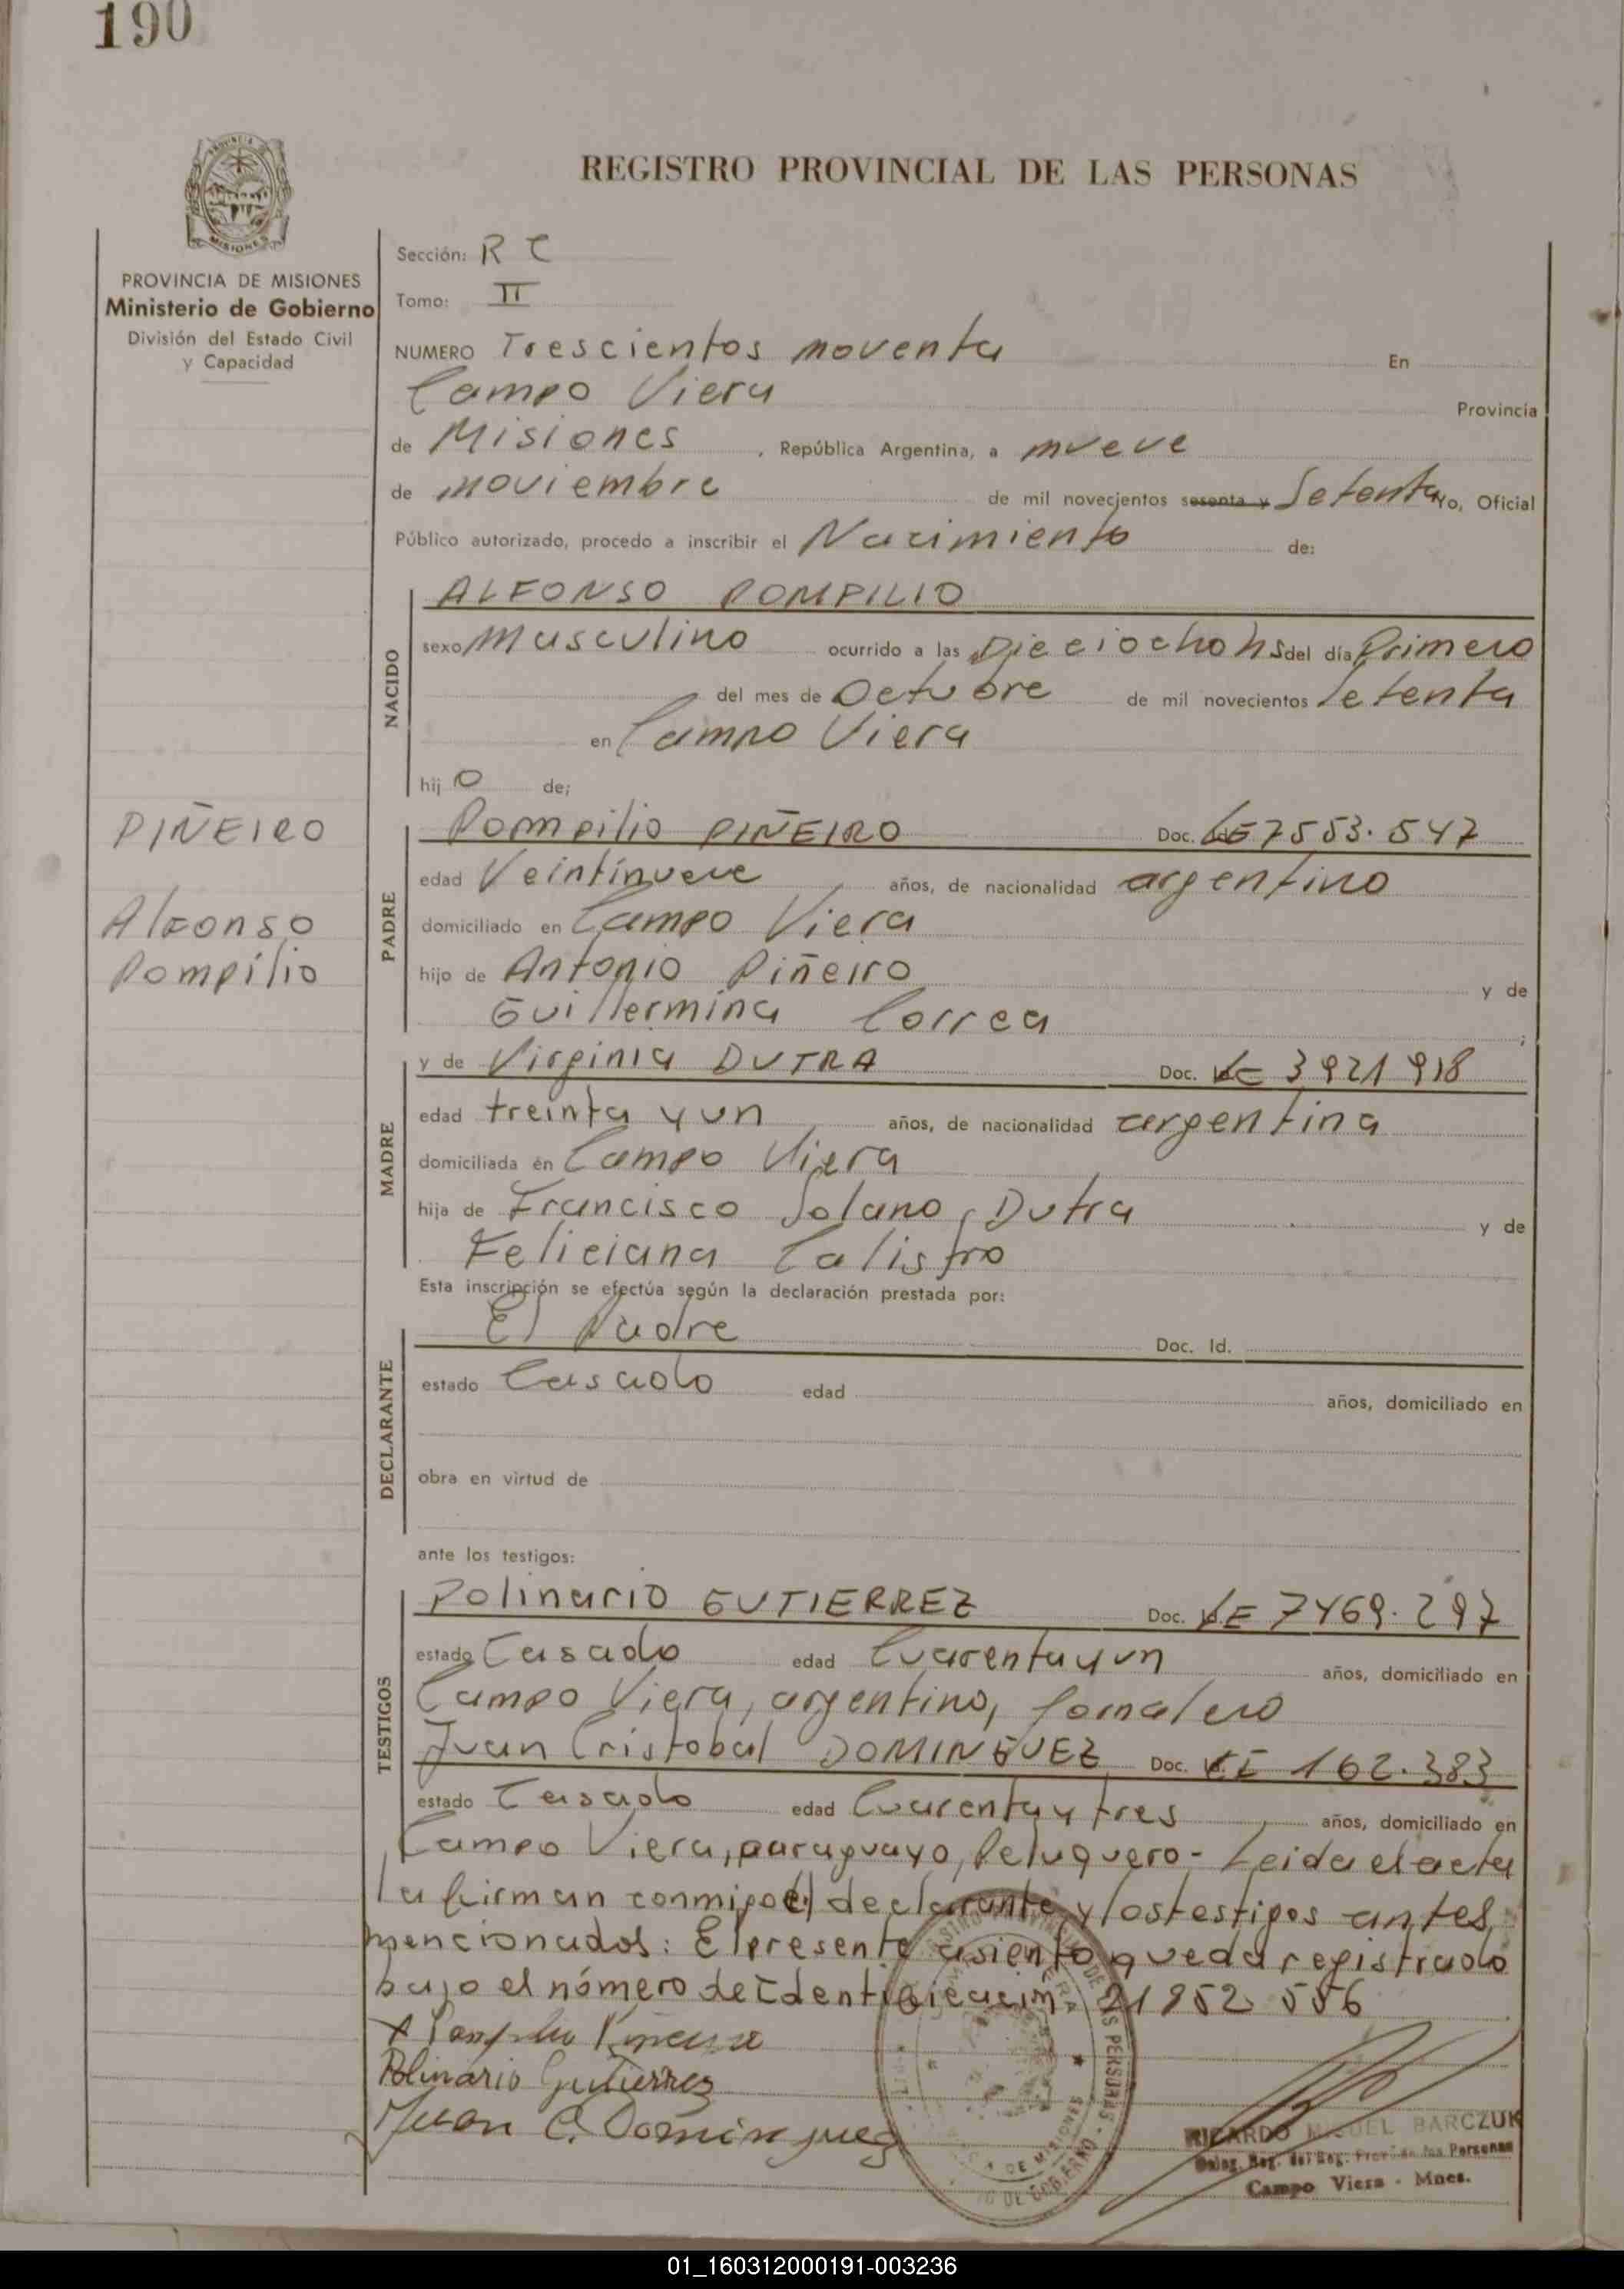 190
REGISTRO PROVINCIAL DE LAS PERSONAS
PROVINCIA DE MISIONES
Ministerio de Gobierno
División del Estado Civil
y Capacidad
Sección: R C
Tomo: II
NUMERO Trescientos noventa En
Campo Viera Provincia
de Misiones, República Argentina, a nueve
de noviembre de mil novecientos sesenta y Setenta Yo, Oficial
Público autorizado, procedo a inscribir el Nacimiento de:
NACIDO
ALFONSO POMPILIO
sexo Masculino ocurrido a las Dieciocho hs del día Primero
del mes de Octubre de mil novecientos Setenta
en Campo Viera
hij o de;
PIÑEIRO
Alfonso
Pompilio
PADRE
Pompilio PIÑEIRO Doc. LE 7553.547
edad Veintinueve años, de nacionalidad argentino
domiciliado en Campo Viera
hijo de Antonio Piñeiro y de
Guillermina Correa;
MADRE
y de Virginia DUTRA Doc. LC 3921918
edad treinta y un años, de nacionalidad argentina
domiciliada en Campo Viera
hija de Francisco Solano Dutra y de
Feliciana Calistro
Esta inscripción se efectúa según la declaración prestada por:
DECLARANTE
El Padre Doc. Id.
estado Casado edad años, domiciliado en
obra en virtud de
ante los testigos:
TESTIGOS
Polinario GUTIERREZ Doc. LE 7469.297
estado Casado edad Cuarenta y un años, domiciliado en
Campo Viera, argentino, Jornalero
Juan Cristobal DOMINGUEZ Doc. CI 162.383
estado Casado edad Cuarenta y tres años, domiciliado en
Campo Viera, paraguayo, Peluquero - Leida el acta
la firman conmigo el declarante y los testigos antes
mencionados: El presente asiento queda registrado
bajo el número de Identificación 21952 556
x Pompilio Piñeiro
Polinario Gutierrez
Juan C. Dominguez
RICARDO MIGUEL BARCZUK
Deleg. Reg. del Reg. Prov. de las Personas
Campo Viera - Mnes.
01_160312000191-003236